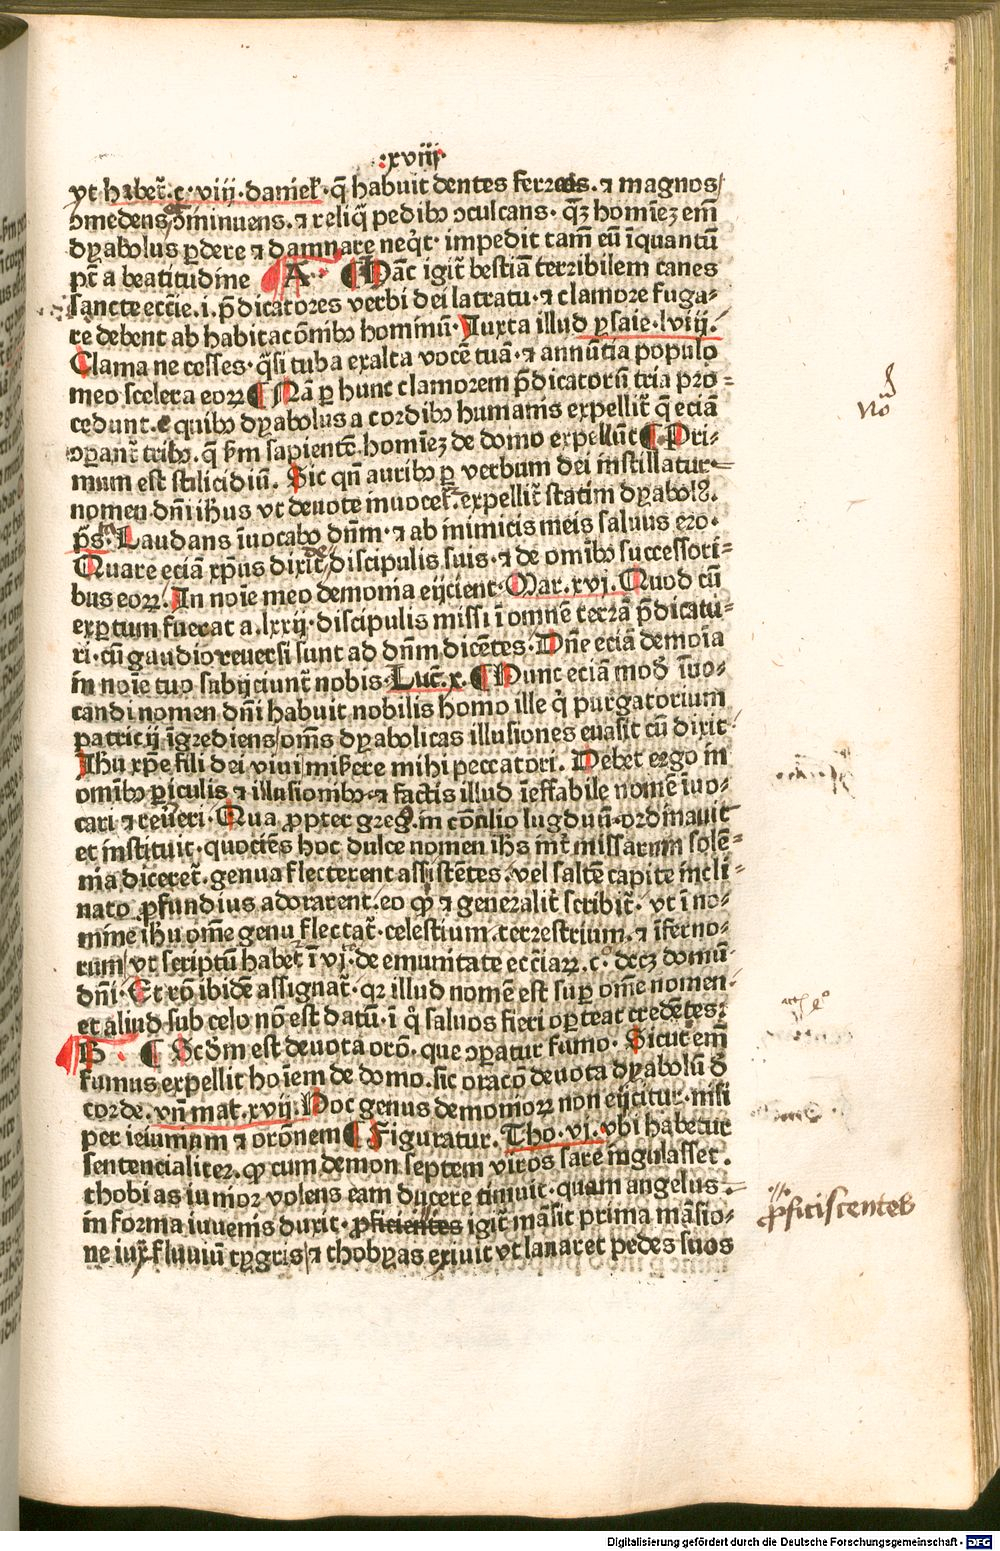 :xviij·
vt habet̃.c·viij·daniel̕·q̃ habuit dentes ferreos.⁊ magnos/
ↄmedens/ↄminuens.⁊ reliq̃ pedibꝫ ↄculcans·q̃ꝫ homiēꝫ em̄
dyabolus ꝑdere ⁊ damnare neq̇t·impedit tam̄ eū īquantū
pt̃ a beatitudine A· ¶ Hãc igit̃ bestiā terribilem canes
sancte eccīe.i.p̄dicatores verbi dei latratu·⁊ clamore fuga⸗
re debent ab habitacōnibꝫ hominū·Iuxta illud ysaie·lviij.
Clama ne cesses·q̃si tuba exalta vocē tuā·⁊ annūtia populo
meo scelera eoꝝ ¶ Nā ꝑ hunc clamorem p̄dicatorū tria pro⸗
cedunt.e quibꝫ dyabolus a cordibꝫ humanis expellit̃ q̃ eciā
oꝑant̃ tribꝫ.q̃ ẜm sapientē.homiēꝫ de domo expellūt ¶ Pri⸗
mum est stilicidiū. Sic qn̄ auribꝫ ꝑ verbum dei instillatur
nomen dn̄i ih̄us vt deuote inuocet̃.expellit̃ statim dyabolꝰ.
p̄s·Laudans īuocabo dn̄m·⁊ ab inimicis meis saluus ero·
Quare eciā xp̄us dixit discipulis suis·⁊ de om̄ibꝫ successori⸗
bus eoꝝ.In noīe meo demonia eijcient·Mar.xvj.Quod cū
exꝑtum fuerat a.lxxij·discipulis missi ī omnē terrā p̄dicatu⸗
ri·cū gaudio reuersi sunt ad dn̄m dicētes·Dn̄e eciā demoīa
in noīe tuo subijciunt̃ nobis·Luc̃.x. ¶ Nunc eciā mod̄ īuo⸗
candi nomen dn̄i habuit nobilis homo ille q̇ purgatorium
patricij īgrediens/om̄s dyabolicas illusiones euasit cū dixit·
Ih̄u xp̄e fili dei viui miẜere mihi peccatori. Debet ergo in
om̄ibꝫ ꝑiculis ⁊ illusionibꝫ·⁊ factis illud īeffabile nomē īuo⸗
cari ⁊ reūeri·Qua ꝓpter greg̃.in cōcilio lugdun̄·ordinauit
et instituit·quociēs hoc dulce nomen ih̄s int̃ missarum solē⸗
nia diceret̃.genua flecterent assistētes·vel saltē capite incli⸗
nato ꝓfundius adorarent.eo ꝙ ⁊ generalit̃ scribit̃·vt ī no⸗
mine ih̄u om̄e genu flectat̃·celestium.terrestrium.⁊ īferno⸗
rum/vt scriptū habet̃ ī vj.de emunitate eccīaꝝ.c·decꝫ domū
dn̄i·Et rō ibidē assignat̃·qꝛ illud nomē est suꝑ om̄e nomen·
et aliud sub celo nō est datū·ī q̇ saluos fieri oꝑteat credētes:
B· ¶ Scd̄m est deuota orō.que oꝑatur fumo·Sicut em̄
fumus expellit hoīem de domo.sic oracō deuota dyabolū d̄
corde.vn̄ mat.xvij.Hoc genus demonioꝝ non eijcitur·nisi
per ieiunium ⁊ orōnem ¶ Figuratur.Tho.vj.vbi habetur
sentencialiter.ꝙ cum demon septem viros sare iugulasset.
thobias iunior volens eam ducere timuit·quam angelus·
in forma iuuenis duxit·ꝓficientes igit̃ mãsit prima mãsio⸗
ne iux̃ fluuiū tygris/⁊ thobyas exiuit vt lauaret pedes suos
No
ꝓficiscentes
Digitalisierung gefördert durch die Deutsche Forschungsgemeinschaft - DFG